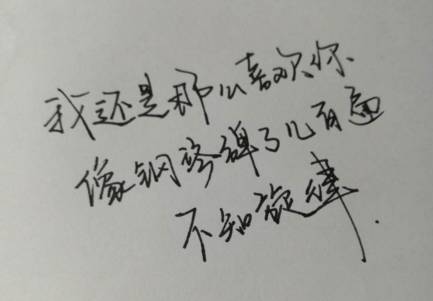 我还是那么喜欢你
像钢琴弹了几百遍
不知旋律.